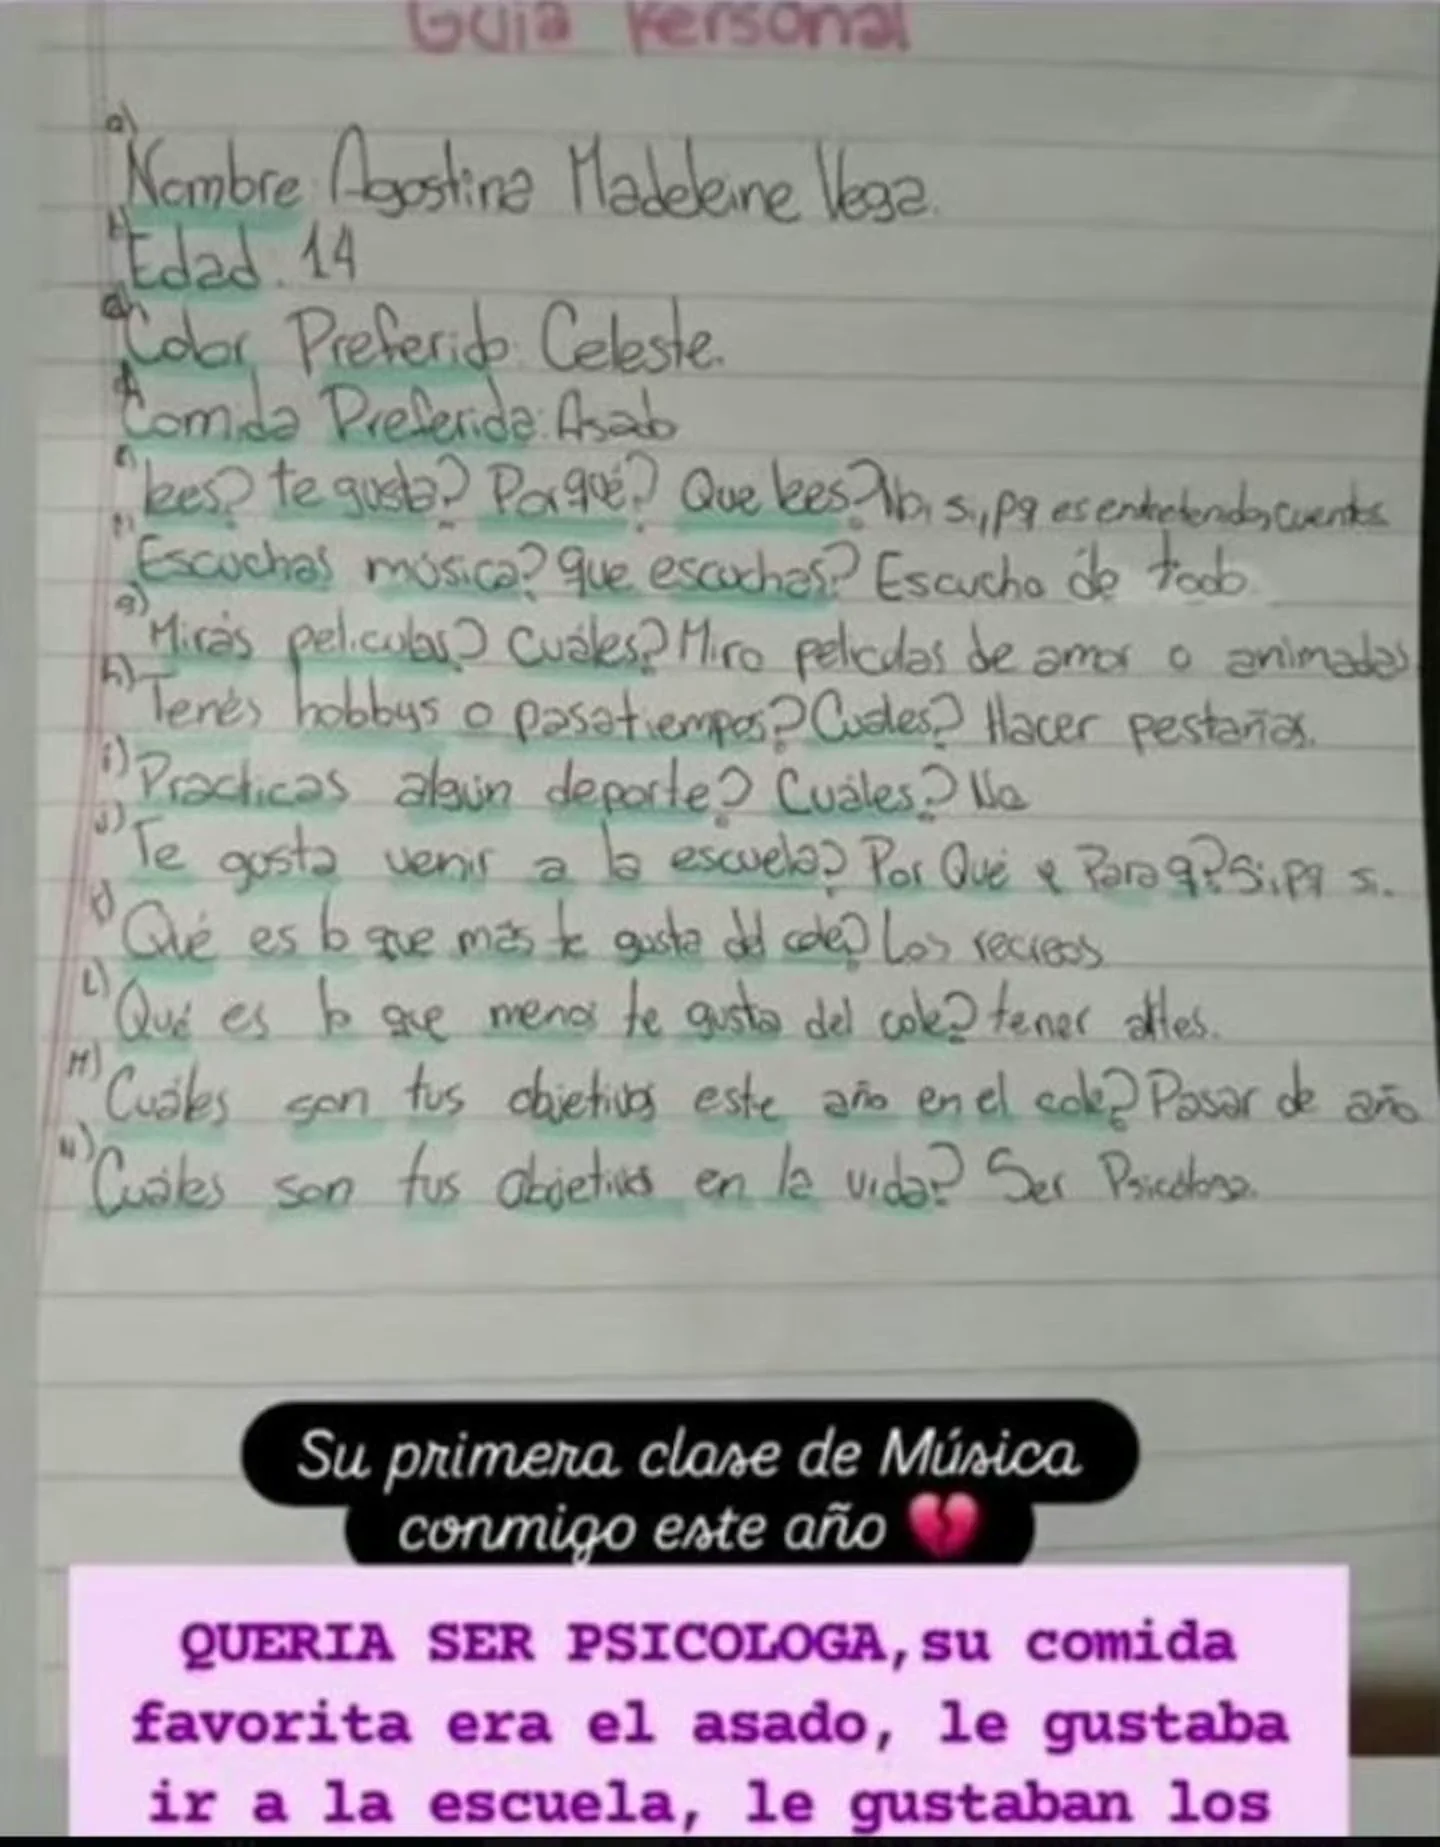 Guia Personal
a)
Nombre: Agostina Madeleine Vega.
b)
Edad. 14
Color Preferido: Celeste.
d)
Comida Preferida: Asado
lees? te gusta? Porqué? Que lees? No, si, pq es entretenido, cuentos
Escuchas música? que escuchas? Escucho de todo.
g)
Mirás peliculas? Cuáles? Miro peliculas de amor o animadas
h)
Tenés hobbys o pasatiempos? Cuales? Hacer pestañas.
i)
Practicas algún deporte? Cuáles? No
J)
Te gusta venir a la escuela? Por Qué y Para q? Si, pq si.
Qué es lo que más te gusta del cole? Los recreos
L)
Qué es lo que menos te gusta del cole? tener altes.
M)
Cuáles son tus objetivos este año en el cole? Pasar de año
N)
Cuáles son tus objetivos en la vida? Ser Psicóloga.
Su primera clase de Música
conmigo este año 💔
QUERIA SER PSICOLOGA, su comida
favorita era el asado, le gustaba
ir a la escuela, le gustaban los